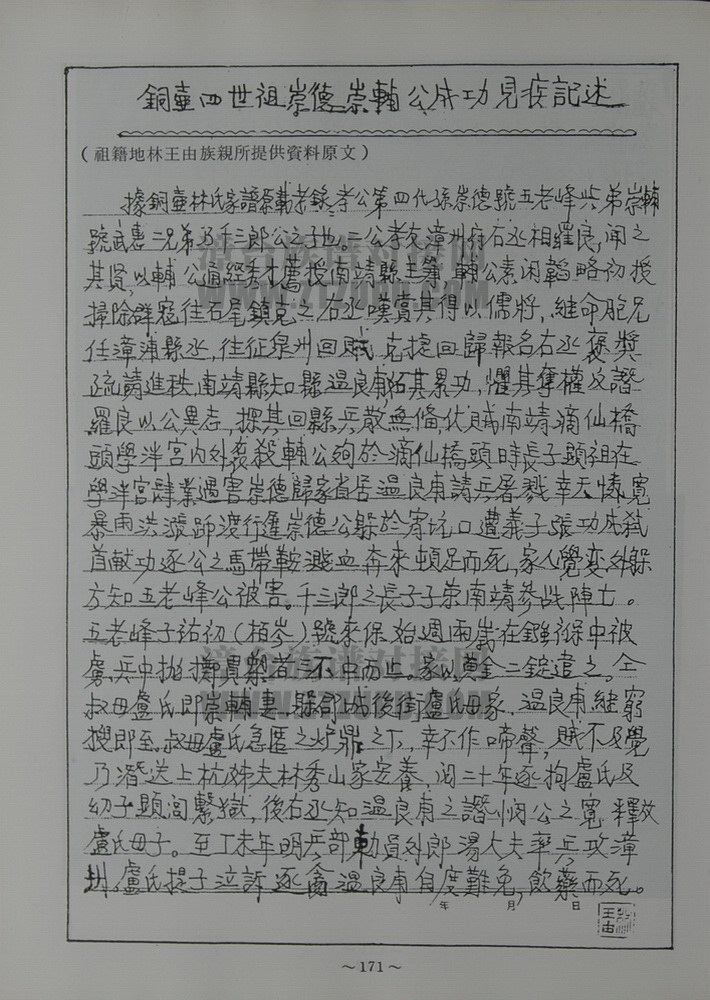 銅壺四世祖崇德崇輔公成功見疫記述
（祖籍地林王由族親所提供資料原文）
據銅壺林氏家譜原載老錄,孝公第四代孫崇德號五老峰共弟崇輔
號武惠二兄弟乃千三郎公之子也。二公孝友漳州府右丞相羅良,聞之
其賢,以輔公通經秀才薦授南靖縣主簿,輔公素闲韜略初授
掃除群寇往石尾鎮克之右丞嘆賞其得以儒將,継命胞兄
任漳浦縣丞,往征泉州回賊克捷回歸報名右丞褒奬
疏請進秩,南靖縣知縣溫良甫 其累功,懼其奪權反譖
羅良以公異志,探其回縣兵散無備,伏賊南靖滴仙橋
頭學泮宮内外衰殺輔公殉於滴仙橋頭時長子顕祖在
學泮宮肆業遇害崇德歸家省居溫良甫請兵屠戮幸天憐寃
暴雨洪漲師渡行進崇德公躲於寄坑口遭義子張功成弒
首献功逐公之馬帶鞍濺血奔來頓足而死,家人覺变外躲
方知五老峰公被害。千三郎之長子子荣南靖参战陣亡。
五老峰子祐初（栢岑）號來保始週兩歲在鏹褓中被
虜,兵中抛擲買槊者三不中而止。家以黄金二錠遣之。仝
叔母盧氏即崇輔妻,躲郡城後街盧氏母家,溫良甫継窮
搜即至,叔母盧氏急匿之炉鼎之下,幸不作啼聲,賊不及覺
乃潛送上杭姊夫林秀山家安養,間二十年逐拘盧氏及
幼子顕閭繫獄,後右丞知溫良甫之譖悯公之寃釋放
盧氏母子。至丁未年明兵部動員外郎湯大夫率兵攻漳
州,盧氏提子泣訴逐擒溫良甫自度難免,飲藥而死。
年 月 日
王由
～171～